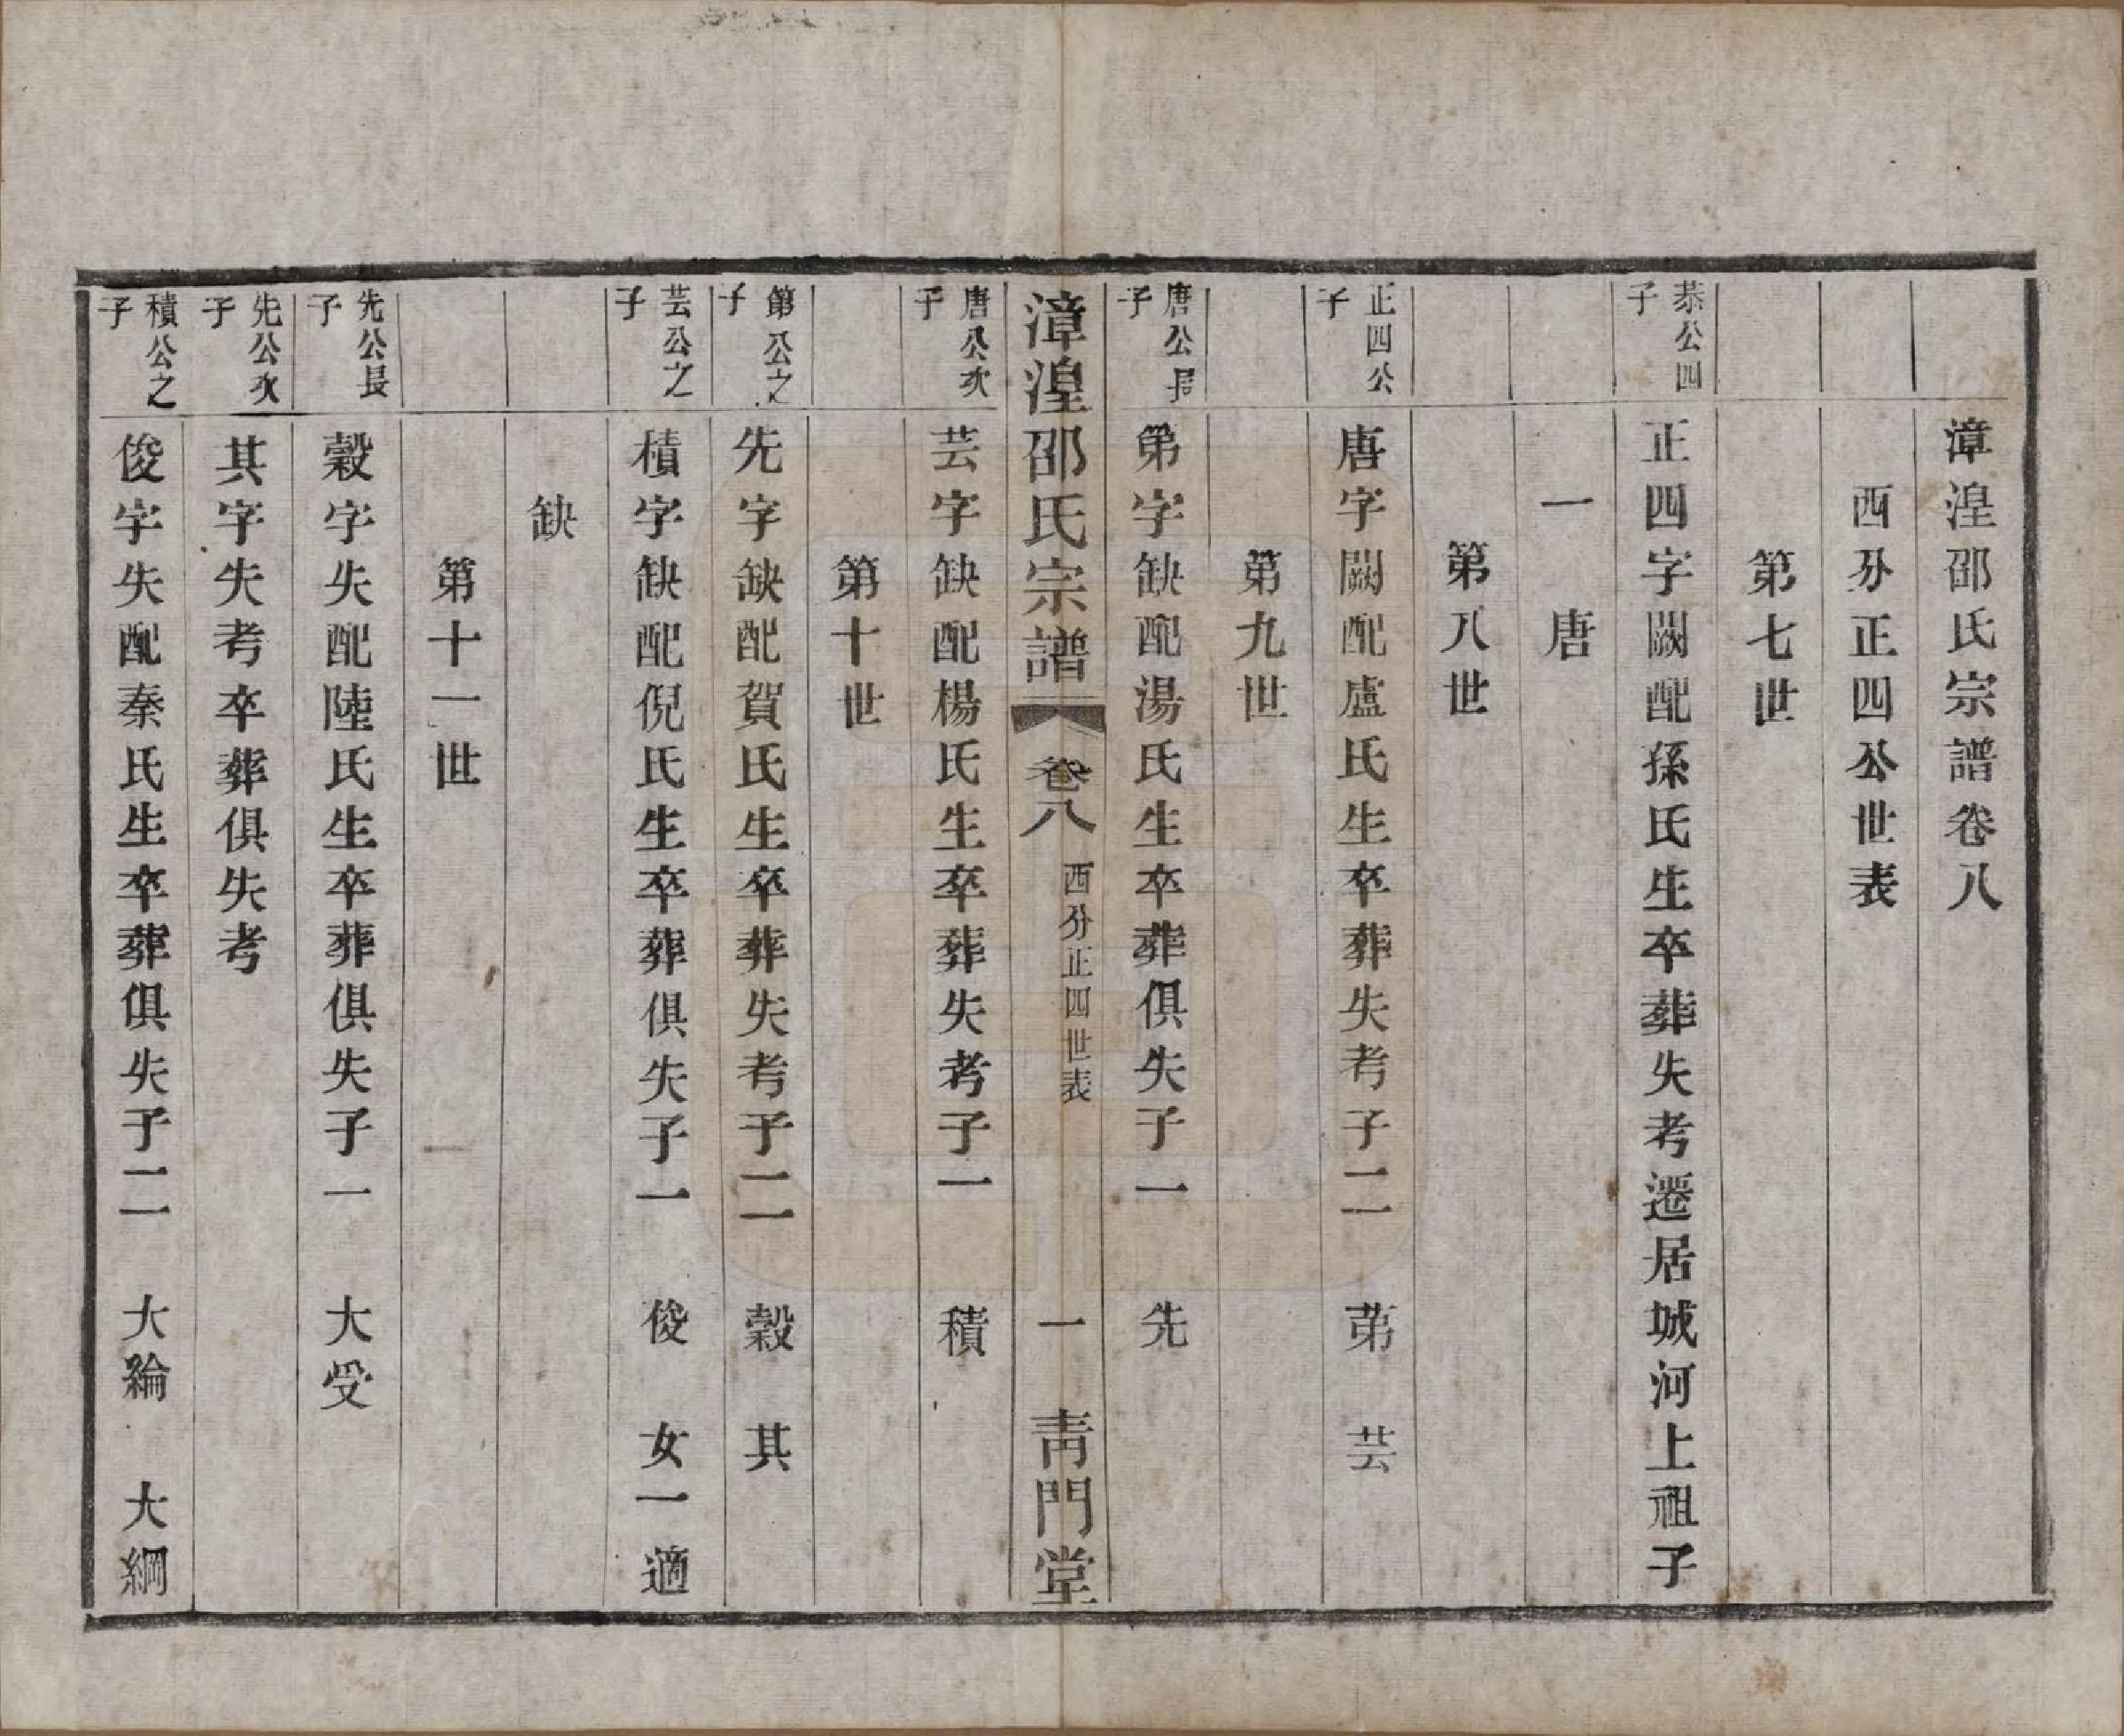 漳湟邵氏宗譜卷八
西分正四公世表
第七世
恭公四子
正四字闕配孫氏生卒葬失考遷居城河上祖子
一　唐
第八世
正四公子
唐字闕配盧氏生卒葬失考子二　苐　芸
第九世
唐公長子
第字缺配湯氏生卒葬俱失子一　先
漳湟邵氏宗譜　卷八　西分正四世表　一　靑門堂
唐公次子
芸字缺配楊氏生卒葬失考子一　積
第十世
第公之子
先字缺配賀氏生卒葬失考子二　穀　其
芸公之子
積字缺配倪氏生卒葬俱失子一　俊　女一適
缺
第十一世
先公長子
穀字失配陸氏生卒葬俱失子一　大受
先公次子
其字失考卒葬俱失考
積公之子
俊字失配秦氏生卒葬俱失子二　大綸　大綱